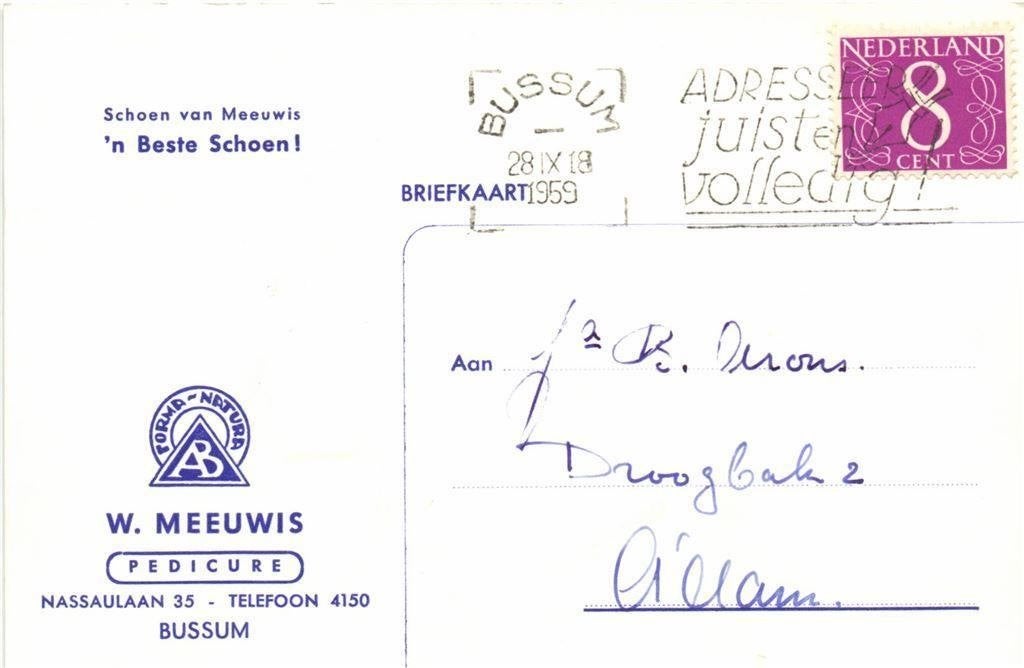 Schoen van Meeuwis
'n Beste Schoen!
NEDERLAND
8
CENT
BUSSUM
28 IX 18
1959
ADRESSEER
juist en
volledig!
BRIEFKAART
Aan Fa B.
Droogbak 2
A'dam.
FORMA-NATURA
AB
W. MEEUWIS
PEDICURE
NASSAULAAN 35 - TELEFOON 4150
BUSSUM